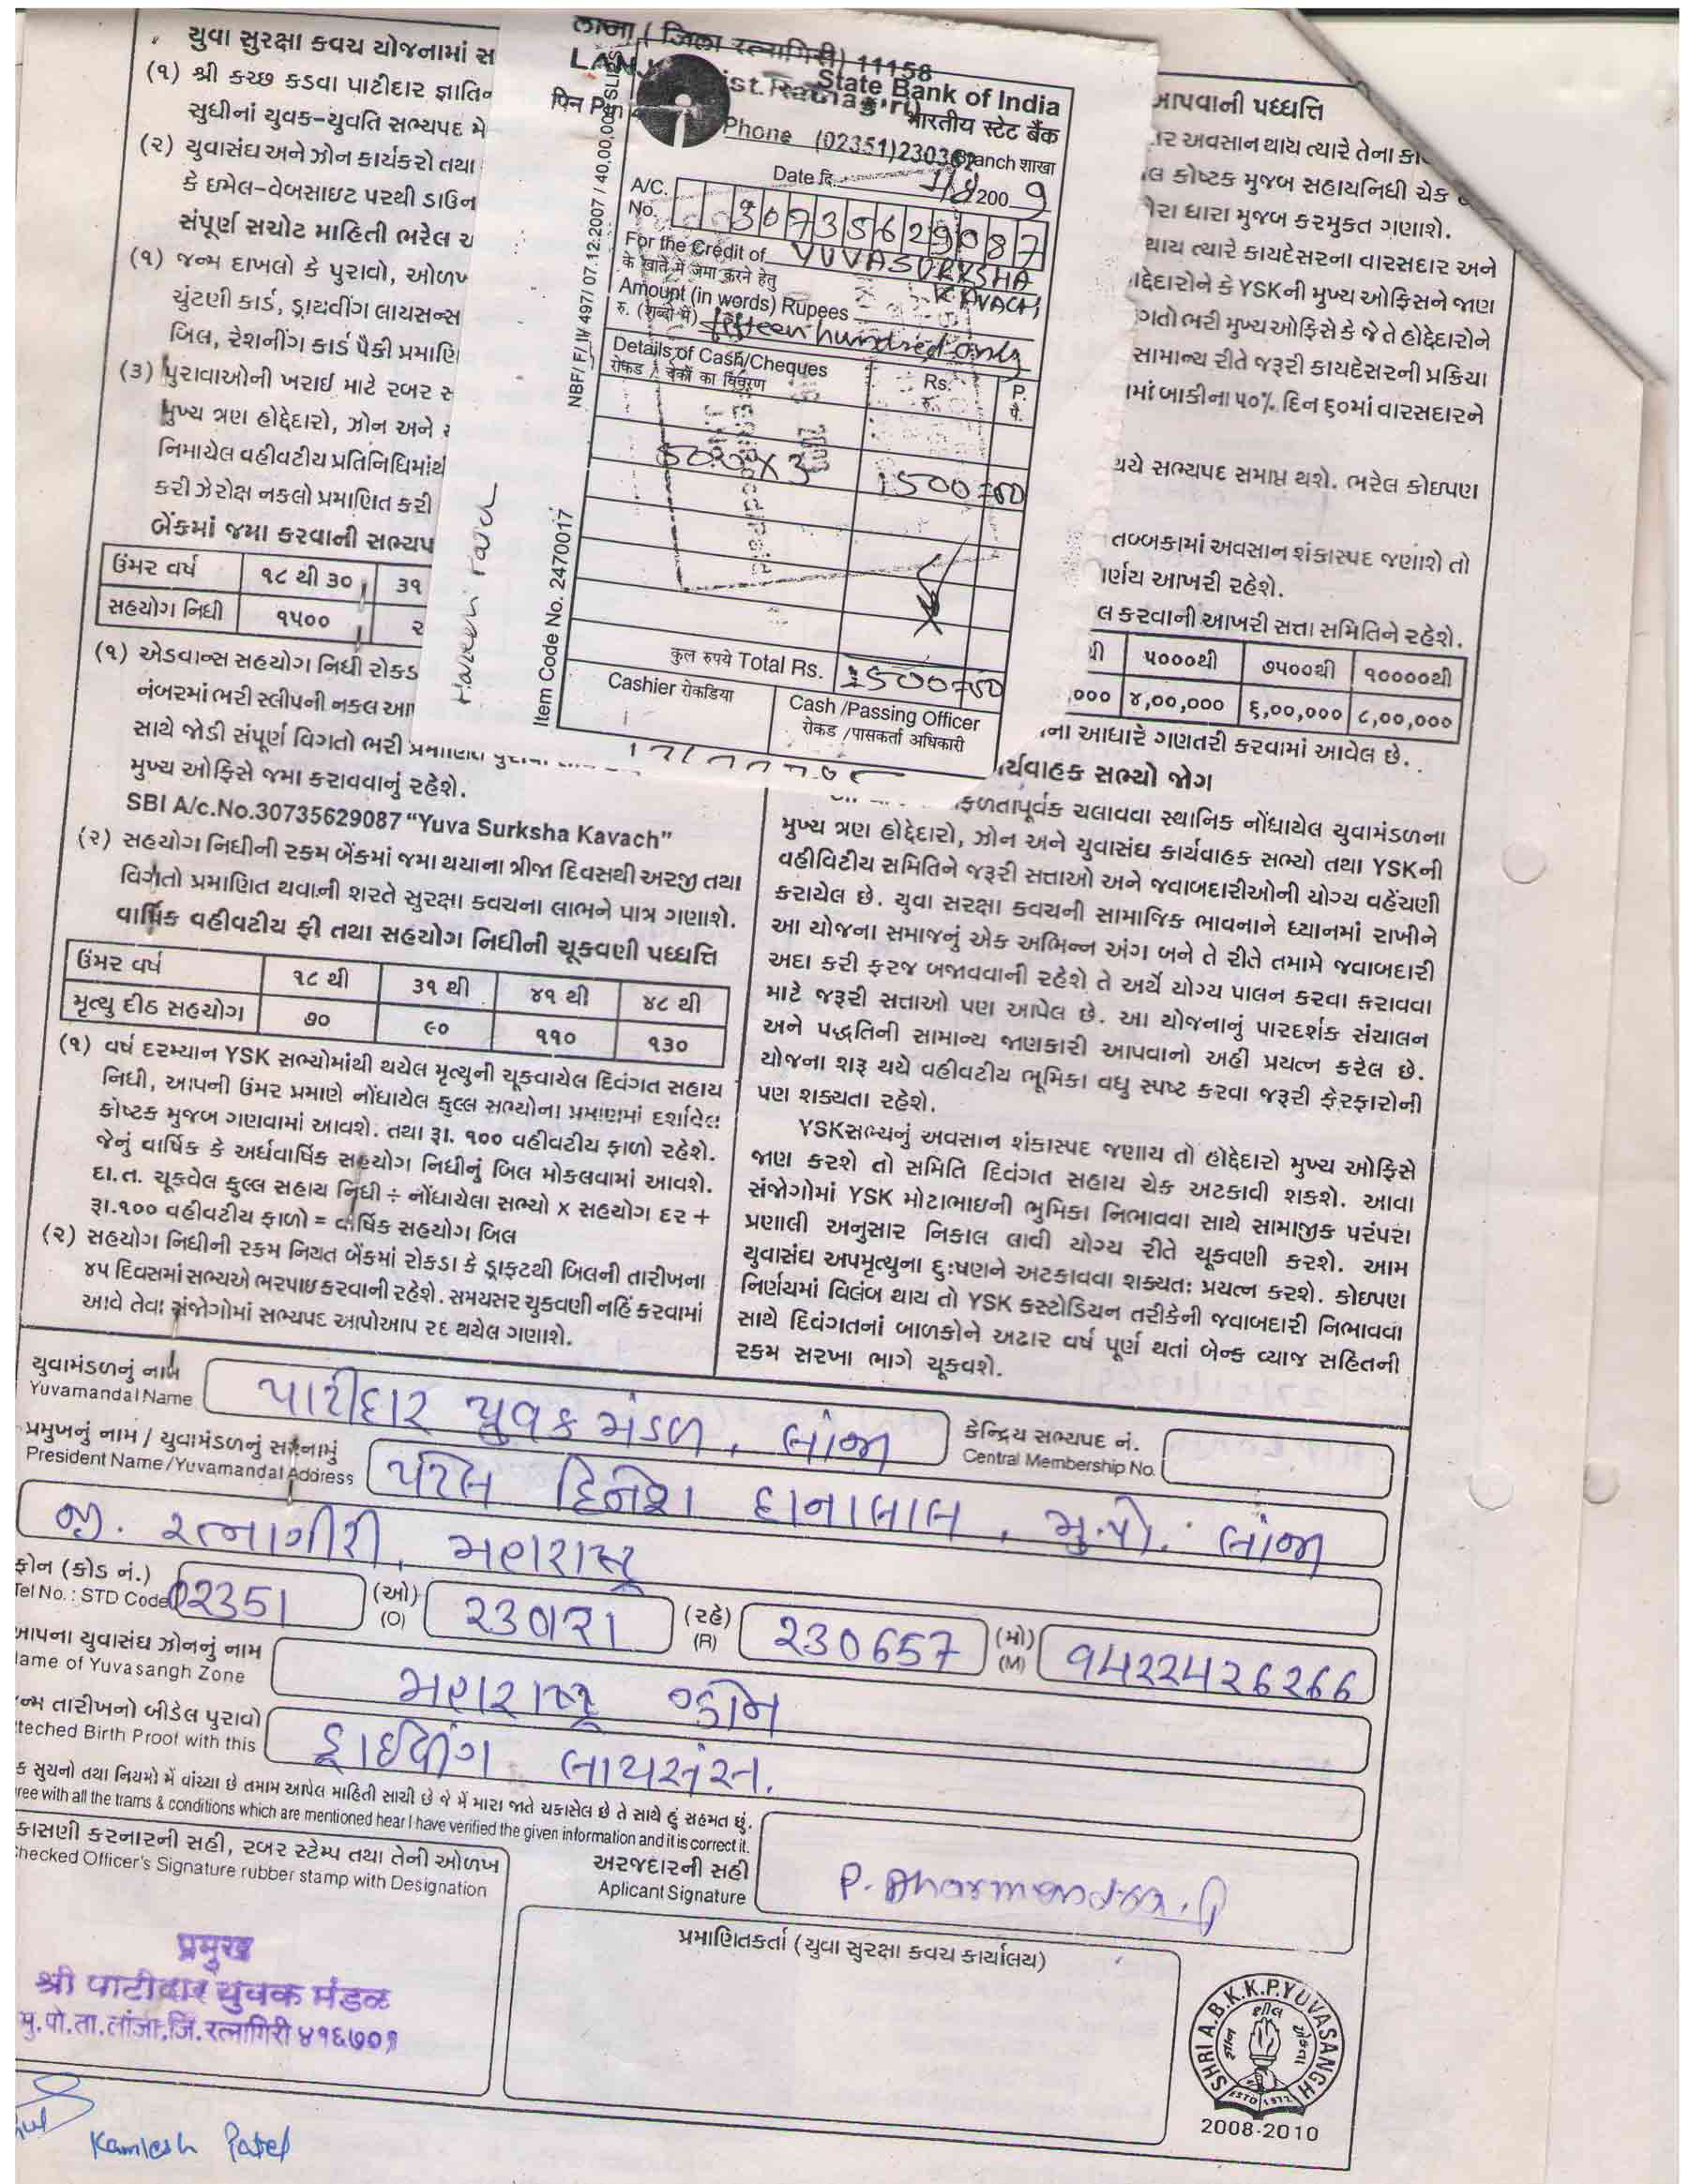 યુવા સુરક્ષા કવચ યોજનામાં સ
(૧) શ્રી કચ્છ કડવા પાટીદાર જ્ઞાતિન
સુધીનાં યુવક-યુવતિ સભ્યપદ મે
(૨) યુવાસંઘ અને ઝોન કાર્યકરો તથા
કે ઇમેલ-વેબસાઇટ પરથી ડાઉન
સંપૂર્ણ સચોટ માહિતી ભરેલ
(૧) જન્મ દાખલો કે પુરાવો, ઓળખ
ચુંટણી કાર્ડ, ડ્રાયવીંગ લાયસન્સ
બિલ, રેશનીંગ કાર્ડ પૈકી પ્રમાણિ
(૩) પુરાવાઓની ખરાઇ માટે રબર સ
મુખ્ય ત્રણ હોદ્દેદારો, ઝોન અને
નિમાયેલ વહીવટીય પ્રતિનિધિમાંથ
કરી ઝેરોક્ષ નકલો પ્રમાણિત કરી
બેંકમાં જમા કરવાની સભ્યપ
ઉંમર વર્ષ ૧૮ થી ૩૦ ૩૧
સહયોગ નિધી ૧૫૦૦ ૨
(૧) એડવાન્સ સહયોગ નિધી રોકડ
નંબરમાં ભરી સ્લીપની નકલ આ
સાથે જોડી સંપૂર્ણ વિગતો ભરી
મુખ્ય ઓફિસે જમા કરાવવાનું રહેશે.
SBI A/c.No.30735629087 “Yuva Surksha Kavach”
(૨) સહયોગ નિધીની રકમ બેંકમાં જમા થયાના ત્રીજા દિવસથી અરજી તથા
વિગતો પ્રમાણિત થવાની શરતે સુરક્ષા કવચના લાભને પાત્ર ગણાશે.
વાર્ષિક વહીવટીય ફી તથા સહયોગ નિધીની ચૂકવણી પધ્ધતિ
ઉંમર વર્ષ ૧૮ થી ૩૧ થી ૪૧ થી ૪૮ થી
મૃત્યુ દીઠ સહયોગ ૭૦ ૯૦ ૧૧૦ ૧૩૦
(૧) વર્ષ દરમ્યાન YSK સભ્યોમાંથી થયેલ મૃત્યુની ચૂકવાયેલ દિવંગત સહાય
નિધી, આપની ઉંમર પ્રમાણે નોંધાયેલ કુલ્લ સભ્યોના પ્રમાણમાં દર્શાવેલ
કોષ્ટક મુજબ ગણવામાં આવશે. તથા રૂા. ૧૦૦ વહીવટીય ફાળો રહેશે.
જેનું વાર્ષિક કે અર્ધવાર્ષિક સહયોગ નિધીનું બિલ મોકલવામાં આવશે.
દા.ત. ચૂકવેલ કુલ્લ સહાય નિધી ÷ નોંધાયેલા સભ્યો X સહયોગ દર +
રૂા.૧૦૦ વહીવટીય ફાળો = વાર્ષિક સહયોગ બિલ
(૨) સહયોગ નિધીની રકમ નિયત બેંકમાં રોકડા કે ડ્રાફ્ટથી બિલની તારીખના
૪૫ દિવસમાં સભ્યએ ભરપાઇ કરવાની રહેશે. સમયસર ચુકવણી નહિં કરવામાં
આવે તેવા સંજોગોમાં સભ્યપદ આપોઆપ રદ થયેલ ગણાશે.
लांजा (जिला रत्नागिरी) 11158
Dist.Ratnagiri
पिन Pin
State Bank of India
भारतीय स्टेट बैंक
Phone (02351)230362
Branch शाखा
Date दि. 4/8 2009
A/C. No. 30735629087
For the Credit of YUVA SURKSHA
के खाते में जमा करने हेतु KAVACH
Amount (in words) Rupees
रु. (शब्दों में) fifteen hundred only
Details of Cash/Cheques Rs. P.
रोकड / चेकों का विवरण रु. पै.
500 x 3 1500=00
कुल रुपये Total Rs. 1500=00
Cashier रोकडिया
Cash /Passing Officer
रोकड /पासकर्ता अधिकारी
NBF/ F/ II/ 497/ 07.12.2007 / 40,00,000 SLIPS
Item Code No. 2470017
આપવાની પધ્ધતિ
અવસાન થાય ત્યારે તેના
કોષ્ટક મુજબ સહાયનિધી ચેક
ધારા મુજબ કરમુકત ગણાશે.
થાય ત્યારે કાયદેસરના વારસદાર અને
હોદ્દેદારોને કે YSKની મુખ્ય ઓફિસને જાણ
ગતો ભરી મુખ્ય ઓફિસે કે જે તે હોદ્દેદારોને
સામાન્ય રીતે જરૂરી કાયદેસરની પ્રક્રિયા
માં બાકીના ૫૦% દિન ૬૦માં વારસદારને
થયે સભ્યપદ સમાપ્ત થશે. ભરેલ કોઇપણ
તબ્બકામાં અવસાન શંકાસ્પદ જણાશે તો
ર્ણય આખરી રહેશે.
લ કરવાની આખરી સત્તા સમિતિને રહેશે.
થી ૫૦૦૦થી ૭૫૦૦થી ૧૦૦૦૦થી
,૦૦૦ ૪,૦૦,૦૦૦ ૬,૦૦,૦૦૦ ૮,૦૦,૦૦૦
ના આધારે ગણતરી કરવામાં આવેલ છે.
ર્યવાહક સભ્યો જોગ
ફળતાપૂર્વક ચલાવવા સ્થાનિક નોંધાયેલ યુવામંડળના
મુખ્ય ત્રણ હોદ્દેદારો, ઝોન અને યુવાસંઘ કાર્યવાહક સભ્યો તથા YSKની
વહીવિટીય સમિતિને જરૂરી સત્તાઓ અને જવાબદારીઓની યોગ્ય વહેંચણી
કરાયેલ છે. યુવા સરક્ષા કવચની સામાજિક ભાવનાને ધ્યાનમાં રાખીને
આ યોજના સમાજનું એક અભિન્ન અંગ બને તે રીતે તમામે જવાબદારી
અદા કરી ફરજ બજાવવાની રહેશે તે અર્થે યોગ્ય પાલન કરવા કરાવવા
માટે જરૂરી સત્તાઓ પણ આપેલ છે. આ યોજનાનું પારદર્શક સંચાલન
અને પદ્ધતિની સામાન્ય જાણકારી આપવાનો અહી પ્રયત્ન કરેલ છે.
યોજના શરૂ થયે વહીવટીય ભૂમિકા વધુ સ્પષ્ટ કરવા જરૂરી ફેરફારોની
પણ શક્યતા રહેશે.
YSKસભ્યનું અવસાન શંકાસ્પદ જણાય તો હોદ્દેદારો મુખ્ય ઓફિસે
જાણ કરશે તો સમિતિ દિવંગત સહાય ચેક અટકાવી શકશે. આવા
સંજોગોમાં YSK મોટાભાઇની ભુમિકા નિભાવવા સાથે સામાજીક પરંપરા
પ્રણાલી અનુસાર નિકાલ લાવી યોગ્ય રીતે ચૂકવણી કરશે. આમ
યુવાસંઘ અપમૃત્યુના દુઃષણને અટકાવવા શક્યતઃ પ્રયત્ન કરશે. કોઇપણ
નિર્ણયમાં વિલંબ થાય તો YSK કસ્ટોડિયન તરીકેની જવાબદારી નિભાવવા
સાથે દિવંગતનાં બાળકોને અઢાર વર્ષ પૂર્ણ થતાં બેન્ક વ્યાજ સહિતની
રકમ સરખા ભાગે ચૂકવશે.
યુવામંડળનું નામ
Yuvamandal Name
પાટીદાર યુવક મંડળ, લાંજા
કેન્દ્રિય સભ્યપદ નં.
Central Membership No.
પ્રમુખનું નામ / યુવામંડળનું સરનામું
President Name/Yuvamandal Address
પટેલ દિનેશ દાનાલાલ, મુ.પો. લાંજા
જી. રત્નાગીરી, મહારાષ્ટ્ર
ફોન (કોડ નં.)
Tel No.: STD Code 02351
(ઓ) (O) 230121
(રહે) (R) 230657
(મો) (M) 9422426266
આપના યુવાસંઘ ઝોનનું નામ
Name of Yuvasangh Zone
મહારાષ્ટ્ર ઝોન
ન્મ તારીખનો બીડેલ પુરાવો
teched Birth Proof with this
ડ્રાઈવીંગ લાયસંસ.
ક સુચનો તથા નિયમો મેં વાંચ્યા છે તમામ આપેલ માહિતી સાચી છે જે મેં મારા જાતે ચકાસેલ છે તે સાથે હું સહમત છું.
ree with all the trams & conditions which are mentioned hear I have verified the given information and it is correct it.
કાસણી કરનારની સહી, રબર સ્ટેમ્પ તથા તેની ઓળખ
hecked Officer's Signature rubber stamp with Designation
અરજદારની સહી
Aplicant Signature
P. Dharmendra.
પ્રમાણિતકર્તા (યુવા સુરક્ષા કવચ કાર્યાલય)
પ્રમુખ
શ્રી પાટીદાર યુવક મંડળ
મુ.પો.તા.લાંજા,જિ.રત્નાગિરી ૪૧૬૭૦૧
Kamlesh Patel
SHRI A.B.K.K.P.YUVASANGH
ESTD 1972
2008-2010